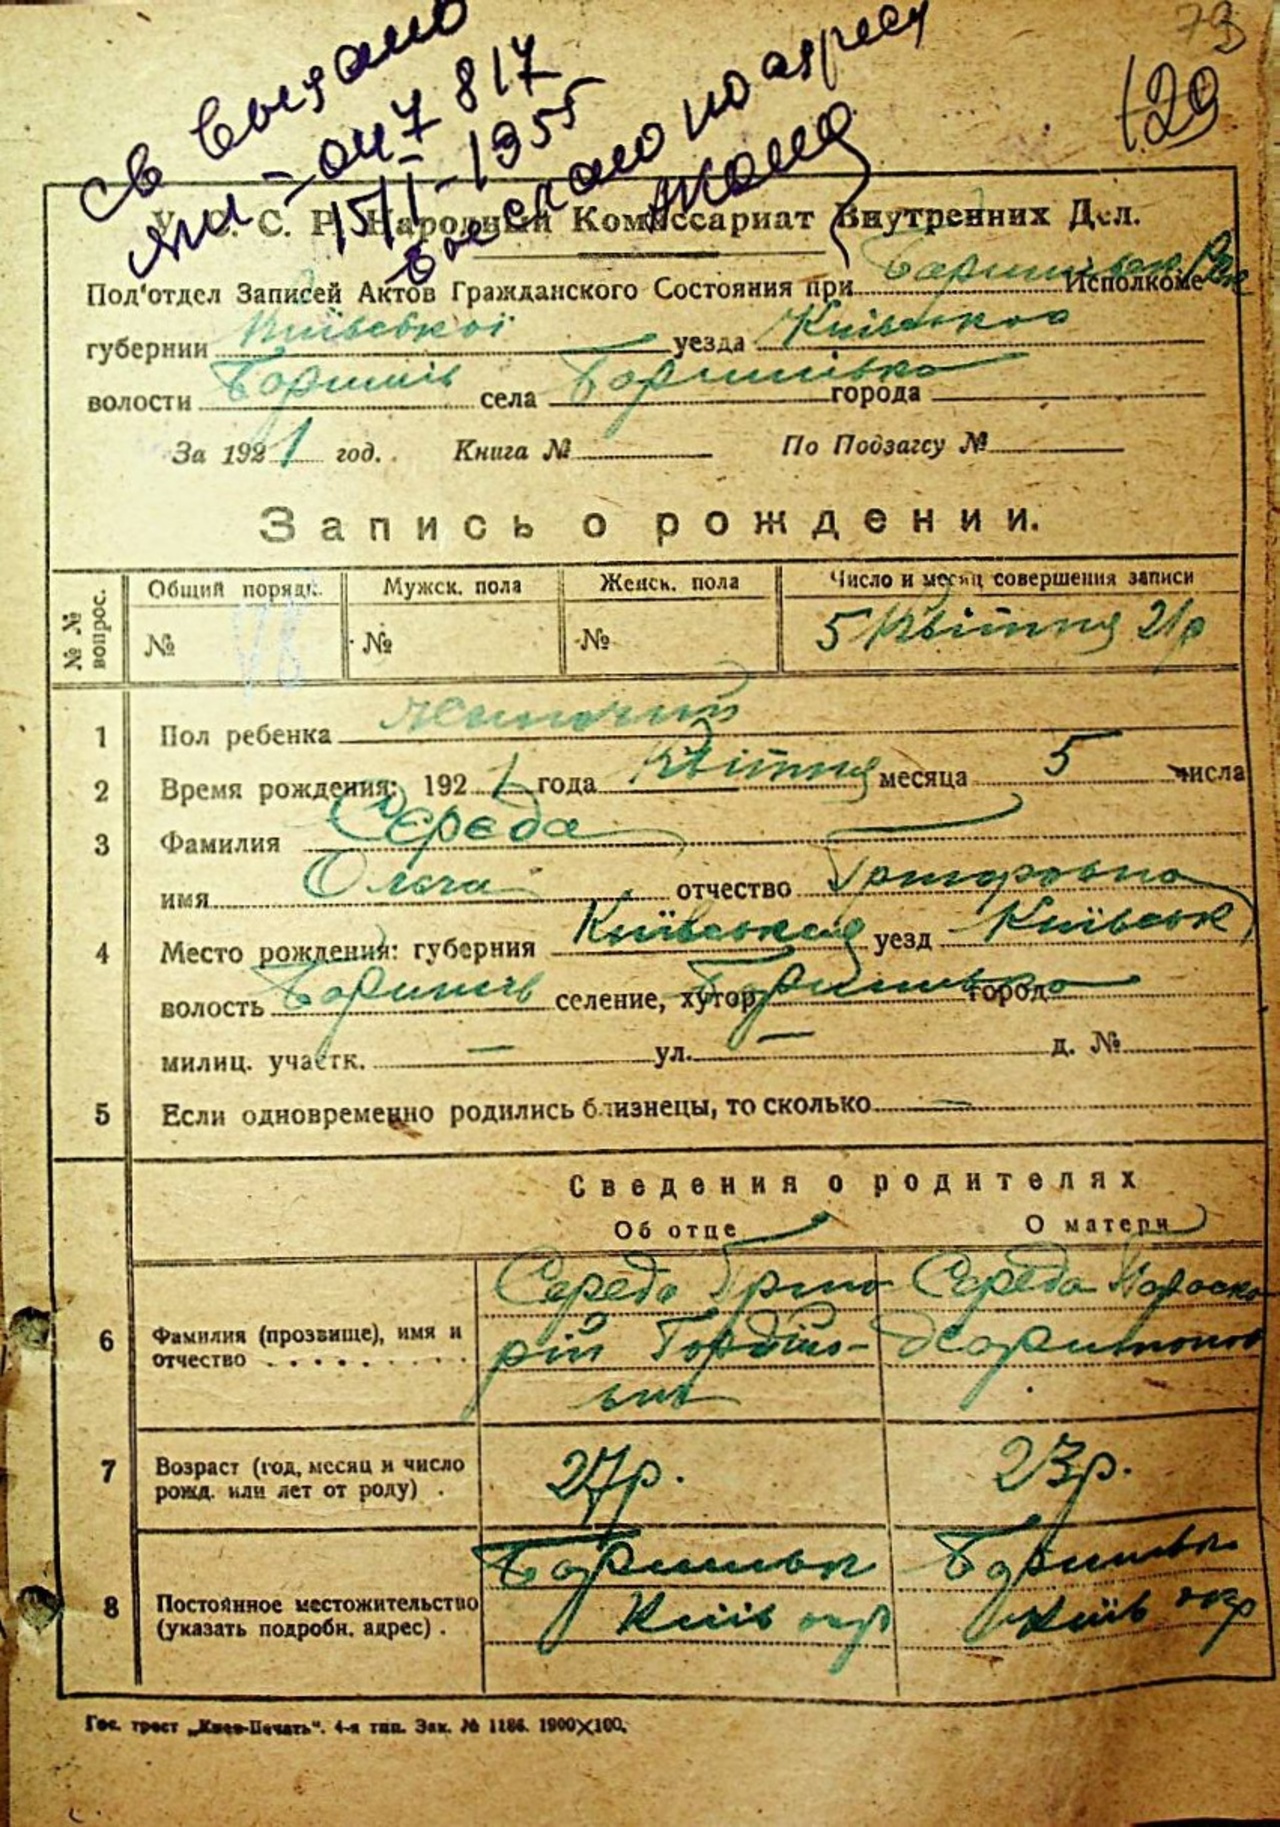 73
129
св выдано
15/II-1955
выслано по адресу
У. С. С. Р. Народный Комиссариат Внутренних Дел.
Под'отдел Записей Актов Гражданского Состояния при Исполкоме
губернии Київської уезда Київского
волости Баришів села Баришівка города
За 1921 год. Книга № По Подзагсу №
Запись о рождении.
№ № вопрос. Общий порядк. Мужск. пола Женск. пола Число и месяц совершения записи
№ № № 5 Квітня 21р
1 Пол ребенка Жиночий
2 Время рождения: 1921 года Квітня месяца 5 числа
3 Фамилия Середа
имя Ольга отчество Григоровна
4 Место рождения: губерния Київська уезд Київськ
волость Баришів селение, хутор Баришівка город
милиц. участк. — ул. — д. №
5 Если одновременно родились близнецы, то сколько —
Сведения о родителях
Об отце О матери
6 Фамилия (прозвище), имя и отчество Середа Григорій Гордійович Середа Параска
7 Возраст (год, месяц и число рожд. или лет от роду) 27р. 23р.
8 Постоянное местожительство (указать подробн. адрес) Баришівк Київ окр Баришівк Київ окр
Гос. трест „Киев-Печать". 4-я тип. Зак. № 1186. 1900×100.